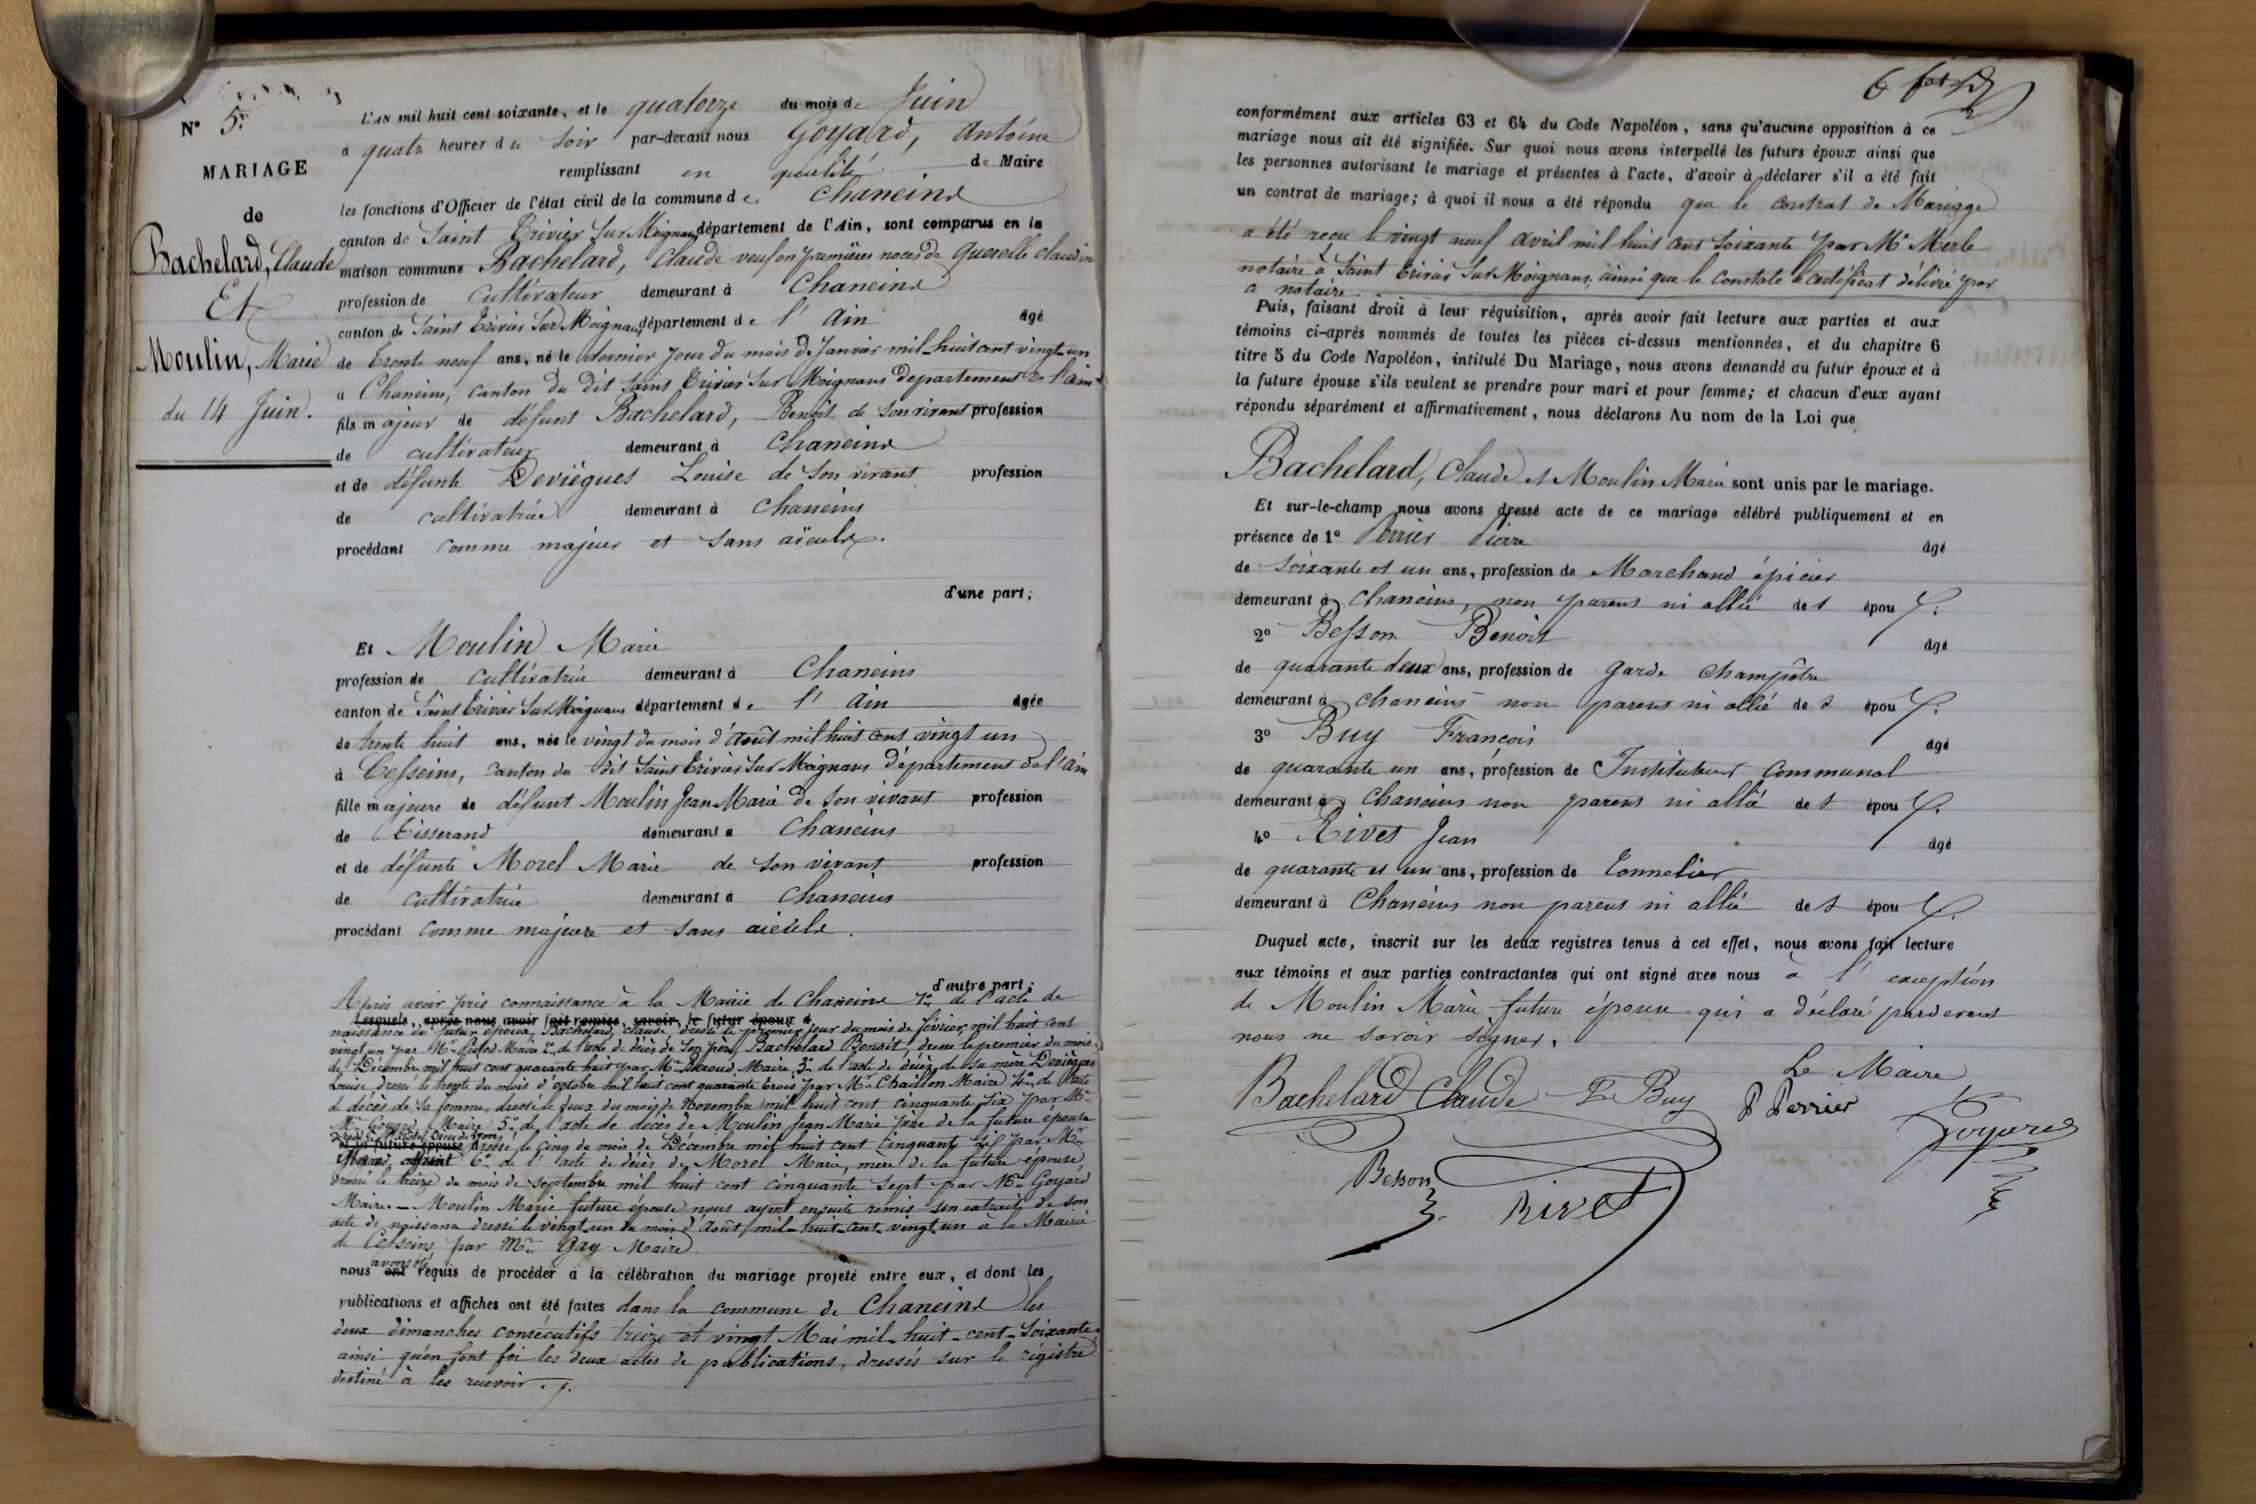 N° 5.
MARIAGE
de
Bachelard, Claude
Et
Moulin, Marie
du 14 Juin.
L'AN mil huit cent soixante, et le quatorze du mois de Juin
à quatre heures du soir par-devant nous Goyard, Antoine
remplissant en qualité de Maire
les fonctions d'Officier de l'état civil de la commune de Chaneins
canton de Saint Trivier Sur Moignans département de l'Ain, sont comparus en la
maison commune Bachelard, Claude veuf en premières noces de
profession de cultivateur demeurant à Chaneins
canton de Saint Trivier Sur Moignans département de l'Ain âgé
de trente neuf ans, né le dernier jour du mois de Janvier mil huit cent vingt-un
à Chaneins, canton du dit Saint Trivier Sur Moignans département de l'Ain
fils majeur de défunt Bachelard, Benoît de son vivant profession
de cultivateur demeurant à Chaneins
et de défunte Devièques Louise de son vivant profession
de cultivatrice demeurant à Chaneins
procédant comme majeur et sans aïeuls.
d'une part;
Et Moulin Marie
profession de cultivatrice demeurant à Chaneins
canton de Saint Trivier Sur Moignans département de l'Ain âgée
de trente huit ans, née le vingt du mois d'Août mil huit cent vingt un
à Cesseins, canton du dit Saint Trivier Sur Moignans département de l'Ain
fille majeure de défunt Moulin Jean Marie de son vivant profession
de Tisserand demeurant à Chaneins
et de défunte Morel Marie de son vivant profession
de cultivatrice demeurant à Chaneins
procédant comme majeure et sans aïeuls.
d'autre part;
Après avoir pris connaissance à la Mairie de Chaneins 1° de l'acte de
Lesquels, après nous avoir fait remise, savoir, le futur époux d
naissance du futur époux, Bachelard, Claude, dressé le premier jour du mois de février mil huit cent
vingt un par Mr Maire 2° de l'acte de décès de son père, Bachelard Benoît, dressé le premier du mois
de Décembre mil huit cent quarante huit par Mr Maire, 3° de l'acte de décès de sa mère Devièques
Louise dressé le trente du mois d'octobre mil huit cent quarante trois par Mr Chaillon Maire 4° de l'acte
de décès de sa femme, dressé le deux du mois de Novembre mil huit cent cinquante six par Mr
Mr Goyard, Maire, 5° de l'acte de décès de Moulin Jean Marie père de la future épouse
et la future épouse dressé le cinq du mois de Décembre mil huit cent cinquante six par Mr
6° de l'acte de décès de Morel Marie, mère de la future épouse,
dressé le treize du mois de septembre mil huit cent cinquante sept par Mr Goyard
Maire. — Moulin Marie future épouse nous ayant ensuite remis son extrait de son
acte de naissance dressé le vingt un du mois d'août mil-huit-cent-vingt-un à la Mairie
de Cesseins par Mr Gay Maire
nous ont avons été requis de procéder à la célébration du mariage projeté entre eux, et dont les
publications et affiches ont été faites dans la commune de Chaneins les
deux dimanches consécutifs treize et vingt Mai mil-huit-cent-soixante
ainsi qu'en font foi les deux actes de publications, dressés sur le régistre
destiné à les recevoir.
6
conformément aux articles 63 et 64 du Code Napoléon, sans qu'aucune opposition à ce
mariage nous ait été signifiée. Sur quoi nous avons interpellé les futurs époux ainsi que
les personnes autorisant le mariage et présentes à l'acte, d'avoir à déclarer s'il a été fait
un contrat de mariage; à quoi il nous a été répondu que le contrat de Mariage
a été reçu le vingt neuf avril mil huit cent soixante par Me Merle
notaire à Saint Trivier Sur Moignans, ainsi que le constate le certificat délivré par
ce notaire
Puis, faisant droit à leur réquisition, après avoir fait lecture aux parties et aux
témoins ci-après nommés de toutes les pièces ci-dessus mentionnées, et du chapitre 6
titre 5 du Code Napoléon, intitulé Du Mariage, nous avons demandé au futur époux et à
la future épouse s'ils veulent se prendre pour mari et pour femme; et chacun d'eux ayant
répondu séparément et affirmativement, nous déclarons Au nom de la Loi que
Bachelard, Claude et Moulin Marie sont unis par le mariage.
Et sur-le-champ nous avons dressé acte de ce mariage célébré publiquement et en
présence de 1° Perrier Pierre âgé
de soixante et un ans, profession de Marchand épicier
demeurant à Chaneins, non parent ni allié des époux.
2° Besson Benoît âgé
de quarante deux ans, profession de garde champêtre
demeurant à Chaneins non parent ni allié des époux.
3° Buy François âgé
de quarante un ans, profession de Instituteur communal
demeurant à Chaneins non parent ni allié des époux.
4° Rivet Jean âgé
de quarante et un ans, profession de Tonnelier
demeurant à Chaneins non parent ni allié des époux.
Duquel acte, inscrit sur les deux registres tenus à cet effet, nous avons fait lecture
aux témoins et aux parties contractantes qui ont signé avec nous à l'exception
de Moulin Marie future épouse qui a déclaré pardevant
nous ne savoir signer.
Le Maire
Bachelard Claude F Buy P Perrier Goyard
Besson Rivet